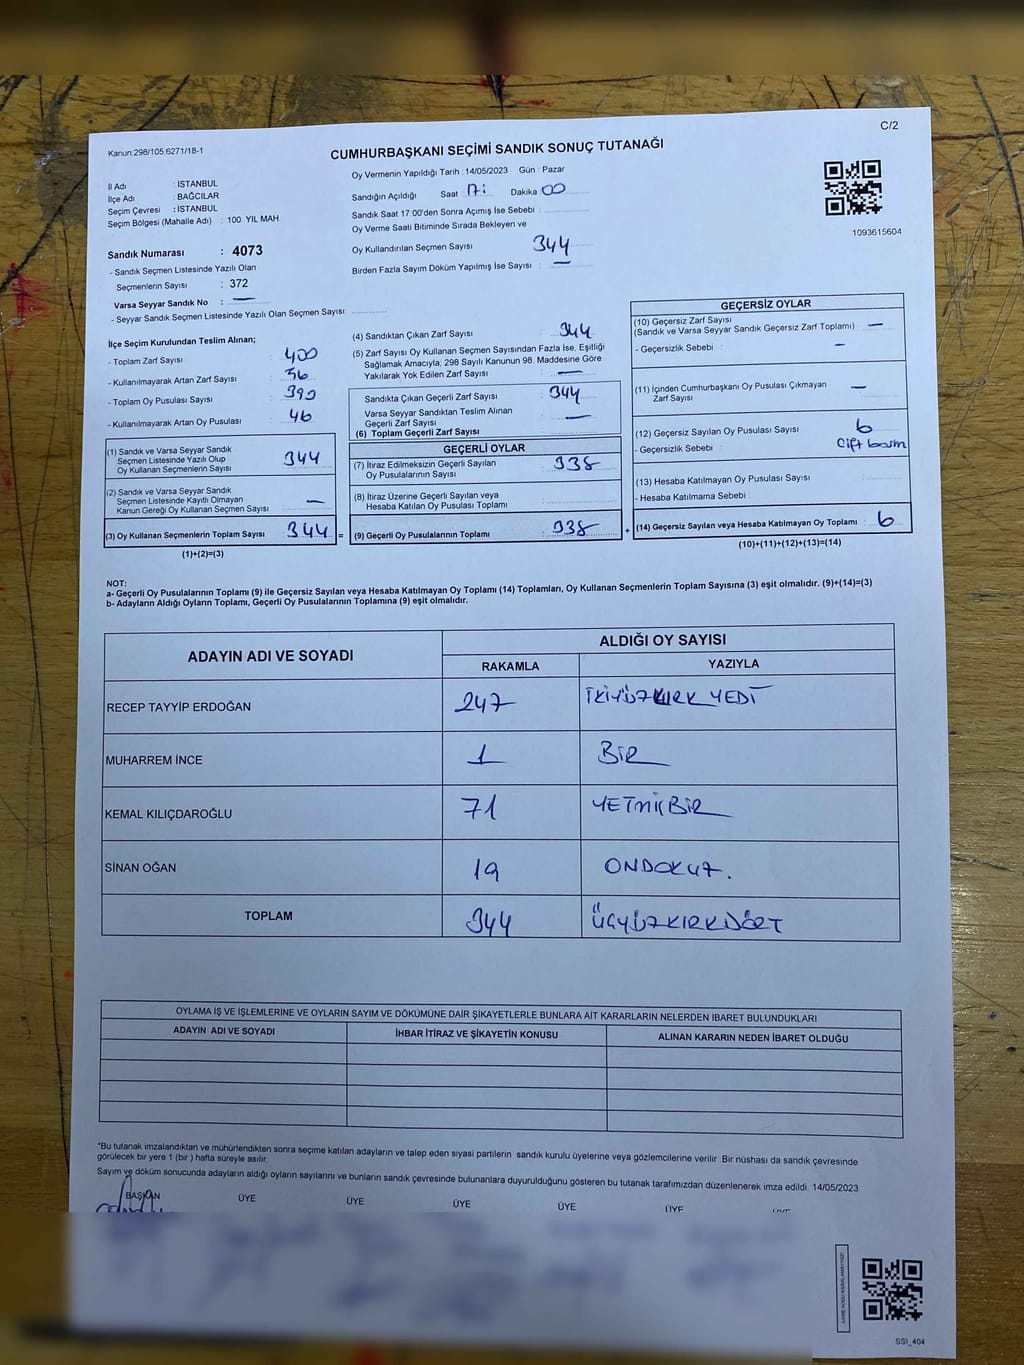 C/2
Kanun 298/105 6271/18-1
CUMHURBAŞKANI SEÇİMİ SANDIK SONUÇ TUTANAĞI
İl Adı : İSTANBUL
İlçe Adı : BAĞCILAR
Seçim Çevresi : İSTANBUL
Seçim Bölgesi (Mahalle Adı) : 100 YIL MAH.
Oy Vermenin Yapıldığı Tarih : 14/05/2023 Gün : Pazar
Sandığın Açıldığı Saat 17: Dakika 00
Sandık Saat 17.00'den Sonra Açımış İse Sebebi :
Oy Verme Saati Bitiminde Sırada Bekleyen ve
Oy Kullandırılan Seçmen Sayısı 344
Birden Fazla Sayım Döküm Yapılmış İse Sayısı : —
1093615604
Sandık Numarası : 4073
- Sandık Seçmen Listesinde Yazılı Olan
Seçmenlerin Sayısı : 372
Varsa Seyyar Sandık No : —
- Seyyar Sandık Seçmen Listesinde Yazılı Olan Seçmen Sayısı:
İlçe Seçim Kurulundan Teslim Alınan;
- Toplam Zarf Sayısı : 400
- Kullanılmayarak Artan Zarf Sayısı : 56
- Toplam Oy Pusulası Sayısı : 390
- Kullanılmayarak Artan Oy Pusulası : 46
(1) Sandık ve Varsa Seyyar Sandık
Seçmen Listesinde Yazılı Olup
Oy Kullanan Seçmenlerin Sayısı : 344
(2) Sandık ve Varsa Seyyar Sandık
Seçmen Listesinde Kayıtlı Olmayan
Kanun Gereği Oy Kullanan Seçmen Sayısı : —
(3) Oy Kullanan Seçmenlerin Toplam Sayısı : 344 =
(1)+(2)=(3)
(4) Sandıktan Çıkan Zarf Sayısı : 344
(5) Zarf Sayısı Oy Kullanan Seçmen Sayısından Fazla İse, Eşitliği
Sağlamak Amacıyla, 298 Sayılı Kanunun 98. Maddesine Göre
Yakılarak Yok Edilen Zarf Sayısı : —
Sandıkta Çıkan Geçerli Zarf Sayısı : 344
Varsa Seyyar Sandıktan Teslim Alınan
Geçerli Zarf Sayısı : —
(6) Toplam Geçerli Zarf Sayısı :
GEÇERLİ OYLAR
(7) İtiraz Edilmeksizin Geçerli Sayılan
Oy Pusulalarının Sayısı : 338
(8) İtiraz Üzerine Geçerli Sayılan veya
Hesaba Katılan Oy Pusulası Toplamı :
(9) Geçerli Oy Pusulalarının Toplamı : 338 +
GEÇERSİZ OYLAR
(10) Geçersiz Zarf Sayısı
(Sandık ve Varsa Seyyar Sandık Geçersiz Zarf Toplamı) : —
- Geçersizlik Sebebi : —
(11) İçinden Cumhurbaşkanı Oy Pusulası Çıkmayan
Zarf Sayısı : —
(12) Geçersiz Sayılan Oy Pusulası Sayısı : 6
- Geçersizlik Sebebi : Çift basım
(13) Hesaba Katılmayan Oy Pusulası Sayısı :
- Hesaba Katılmama Sebebi :
(14) Geçersiz Sayılan veya Hesaba Katılmayan Oy Toplamı : 6
(10)+(11)+(12)+(13)=(14)
NOT:
a- Geçerli Oy Pusulalarının Toplamı (9) ile Geçersiz Sayılan veya Hesaba Katılmayan Oy Toplamı (14) Toplamları, Oy Kullanan Seçmenlerin Toplam Sayısına (3) eşit olmalıdır. (9)+(14)=(3)
b- Adayların Aldığı Oyların Toplamı, Geçerli Oy Pusulalarının Toplamına (9) eşit olmalıdır.
ADAYIN ADI VE SOYADI ALDIĞI OY SAYISI
RAKAMLA YAZIYLA
RECEP TAYYİP ERDOĞAN 247 İKİYÜZKIRK YEDİ
MUHARREM İNCE 1 BİR
KEMAL KILIÇDAROĞLU 71 YETMİŞBİR
SİNAN OĞAN 19 ONDOKUZ.
TOPLAM 344 ÜÇYÜZKIRKDÖRT
OYLAMA İŞ VE İŞLEMLERİNE VE OYLARIN SAYIM VE DÖKÜMÜNE DAİR ŞİKAYETLERLE BUNLARA AİT KARARLARIN NELERDEN İBARET BULUNDUKLARI
ADAYIN ADI VE SOYADI İHBAR İTİRAZ VE ŞİKAYETİN KONUSU ALINAN KARARIN NEDEN İBARET OLDUĞU
*Bu tutanak imzalandıktan ve mühürlendikten sonra seçime katılan adayların ve talep eden siyasi partilerin sandık kurulu üyelerine veya gözlemcilerine verilir. Bir nüshası da sandık çevresinde
görülecek bir yere 1 (bir ) hafta süreyle asılır.
Sayım ve döküm sonucunda adayların aldığı oyların sayılarını ve bunların sandık çevresinde bulunanlara duyurulduğunu gösteren bu tutanak tarafımızdan düzenlenerek imza edildi. 14/05/2023
BAŞKAN ÜYE ÜYE ÜYE ÜYE ÜYE
SSİ_404